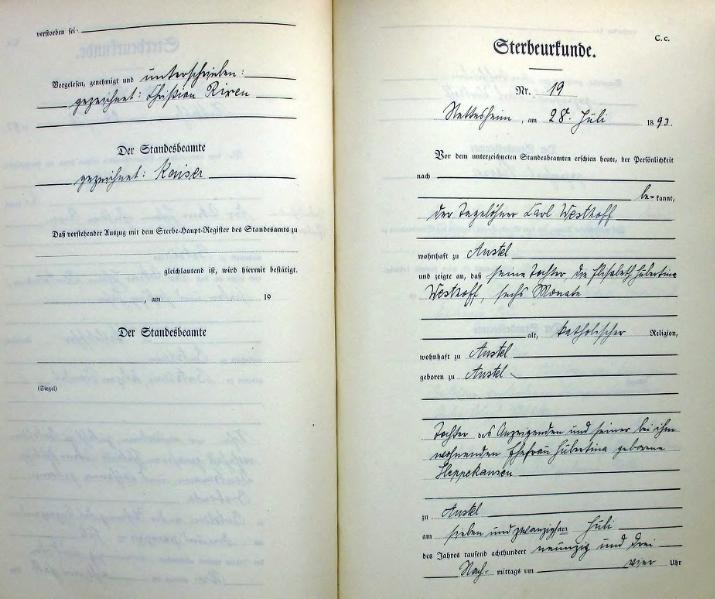 verstorben sei:
Vorgelesen, genehmigt und unterschrieben:
gezeichnet: Christian Riren
Der Standesbeamte
gezeichnet: Kaiser
Daß vorstehender Auszug mit dem Sterbe-Haupt-Register des Standesamts zu
gleichlautend ist, wird hiermit bestätigt.
, am 19
Der Standesbeamte
(Siegel)
C. c.
Sterbeurkunde.
Nr. 19
Nettesheim, am 28. Juli 1893
Vor dem unterzeichneten Standesbeamten erschien heute, der Persönlichkeit
nach
be-kannt,
der Tagelöhner Carl Westhoff
wohnhaft zu Anstel
und zeigte an, daß seine Tochter, die Elisabeth Hubertina
Westhoff, sechs Monate
alt, katholischer Religion,
wohnhaft zu Anstel
geboren zu Anstel
Tochter des Anzeigenden und seiner bei ihm
wohnenden Ehefrau Hubertina geborene
Heppekausen
zu Anstel
am sieben und zwanzigsten Juli
des Jahres tausend achthundert neunzig und drei
Nach- mittags um vier Uhr